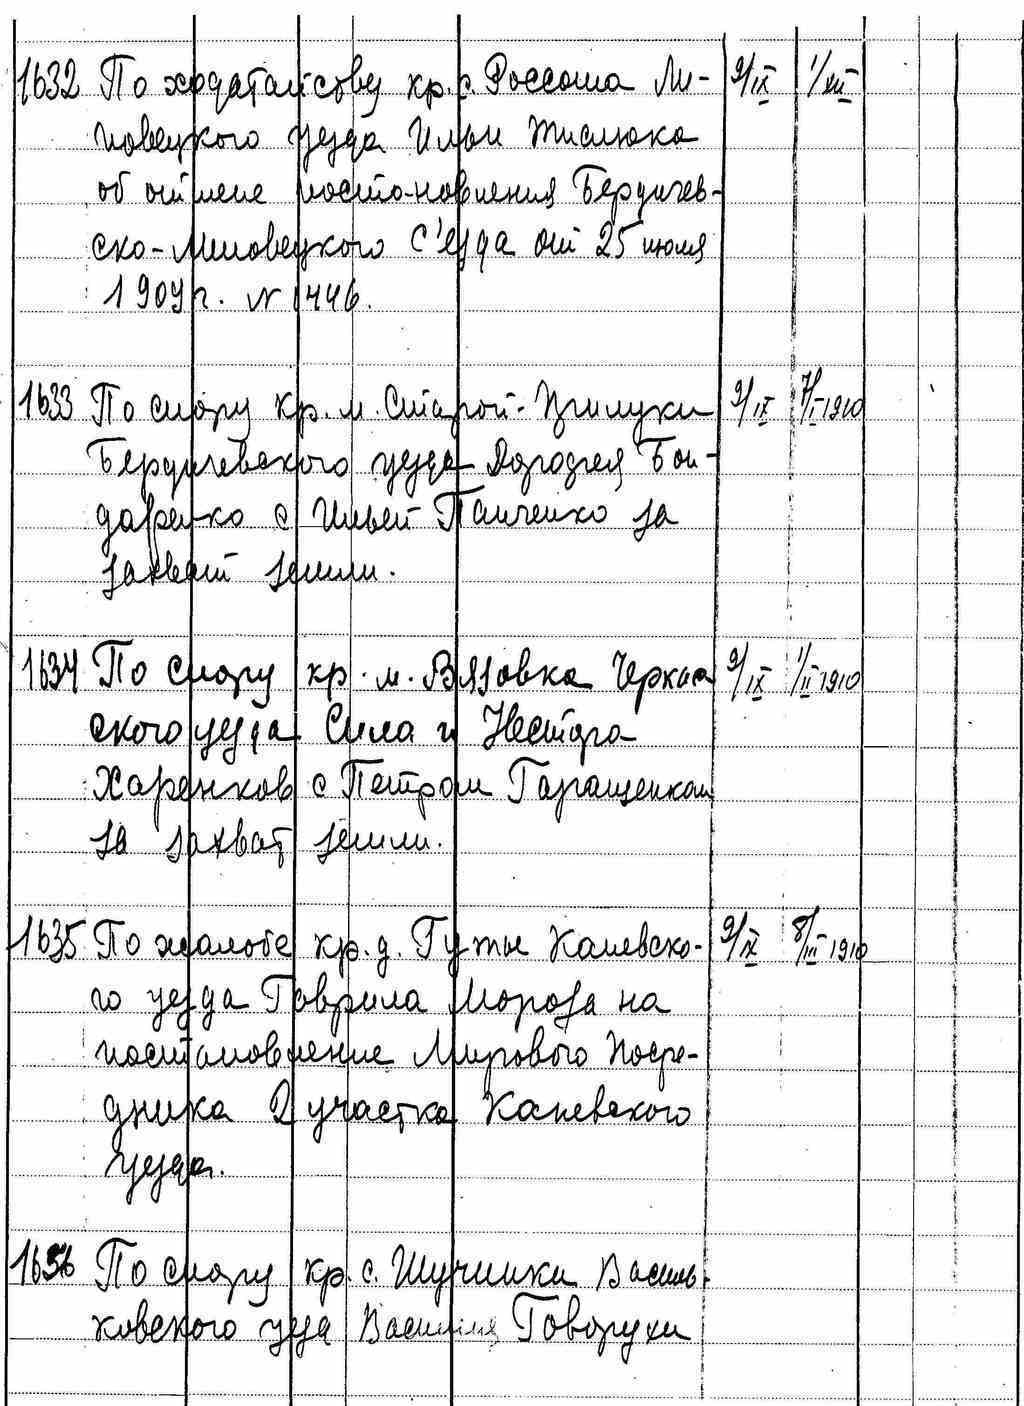 1632 По ходатайству кр. с. Россоша Ли- 9/IX 1/XII
повецкого уезда Ильи
об отмене постановления Бердичев-
ско-Липовецкого С'езда от 25 июля
1909 г. N 1446.
1633 По спору кр. м. Старой-Прилуки 9/IX 7/I-1910
Бердичевского уезда Дорофея Бон-
даренко с Ильей Панченко за
захват земли.
1634 По спору кр. м. Вязовка Черкас 9/IX 1/II 1910
ского уезда Сила и Нестора
Харенков с Петром Гаращенком
за захват земли.
1635 По жалобе кр. д. Гуты Каневско- 9/IX 8/III 1910
го уезда Гаврила Мороза на
постановление Мирового Посре-
дника 2 участка Каневского
уезда.
1636 По спору кр. с. Шучинки Василь-
ковского уезда Василия Говорухи